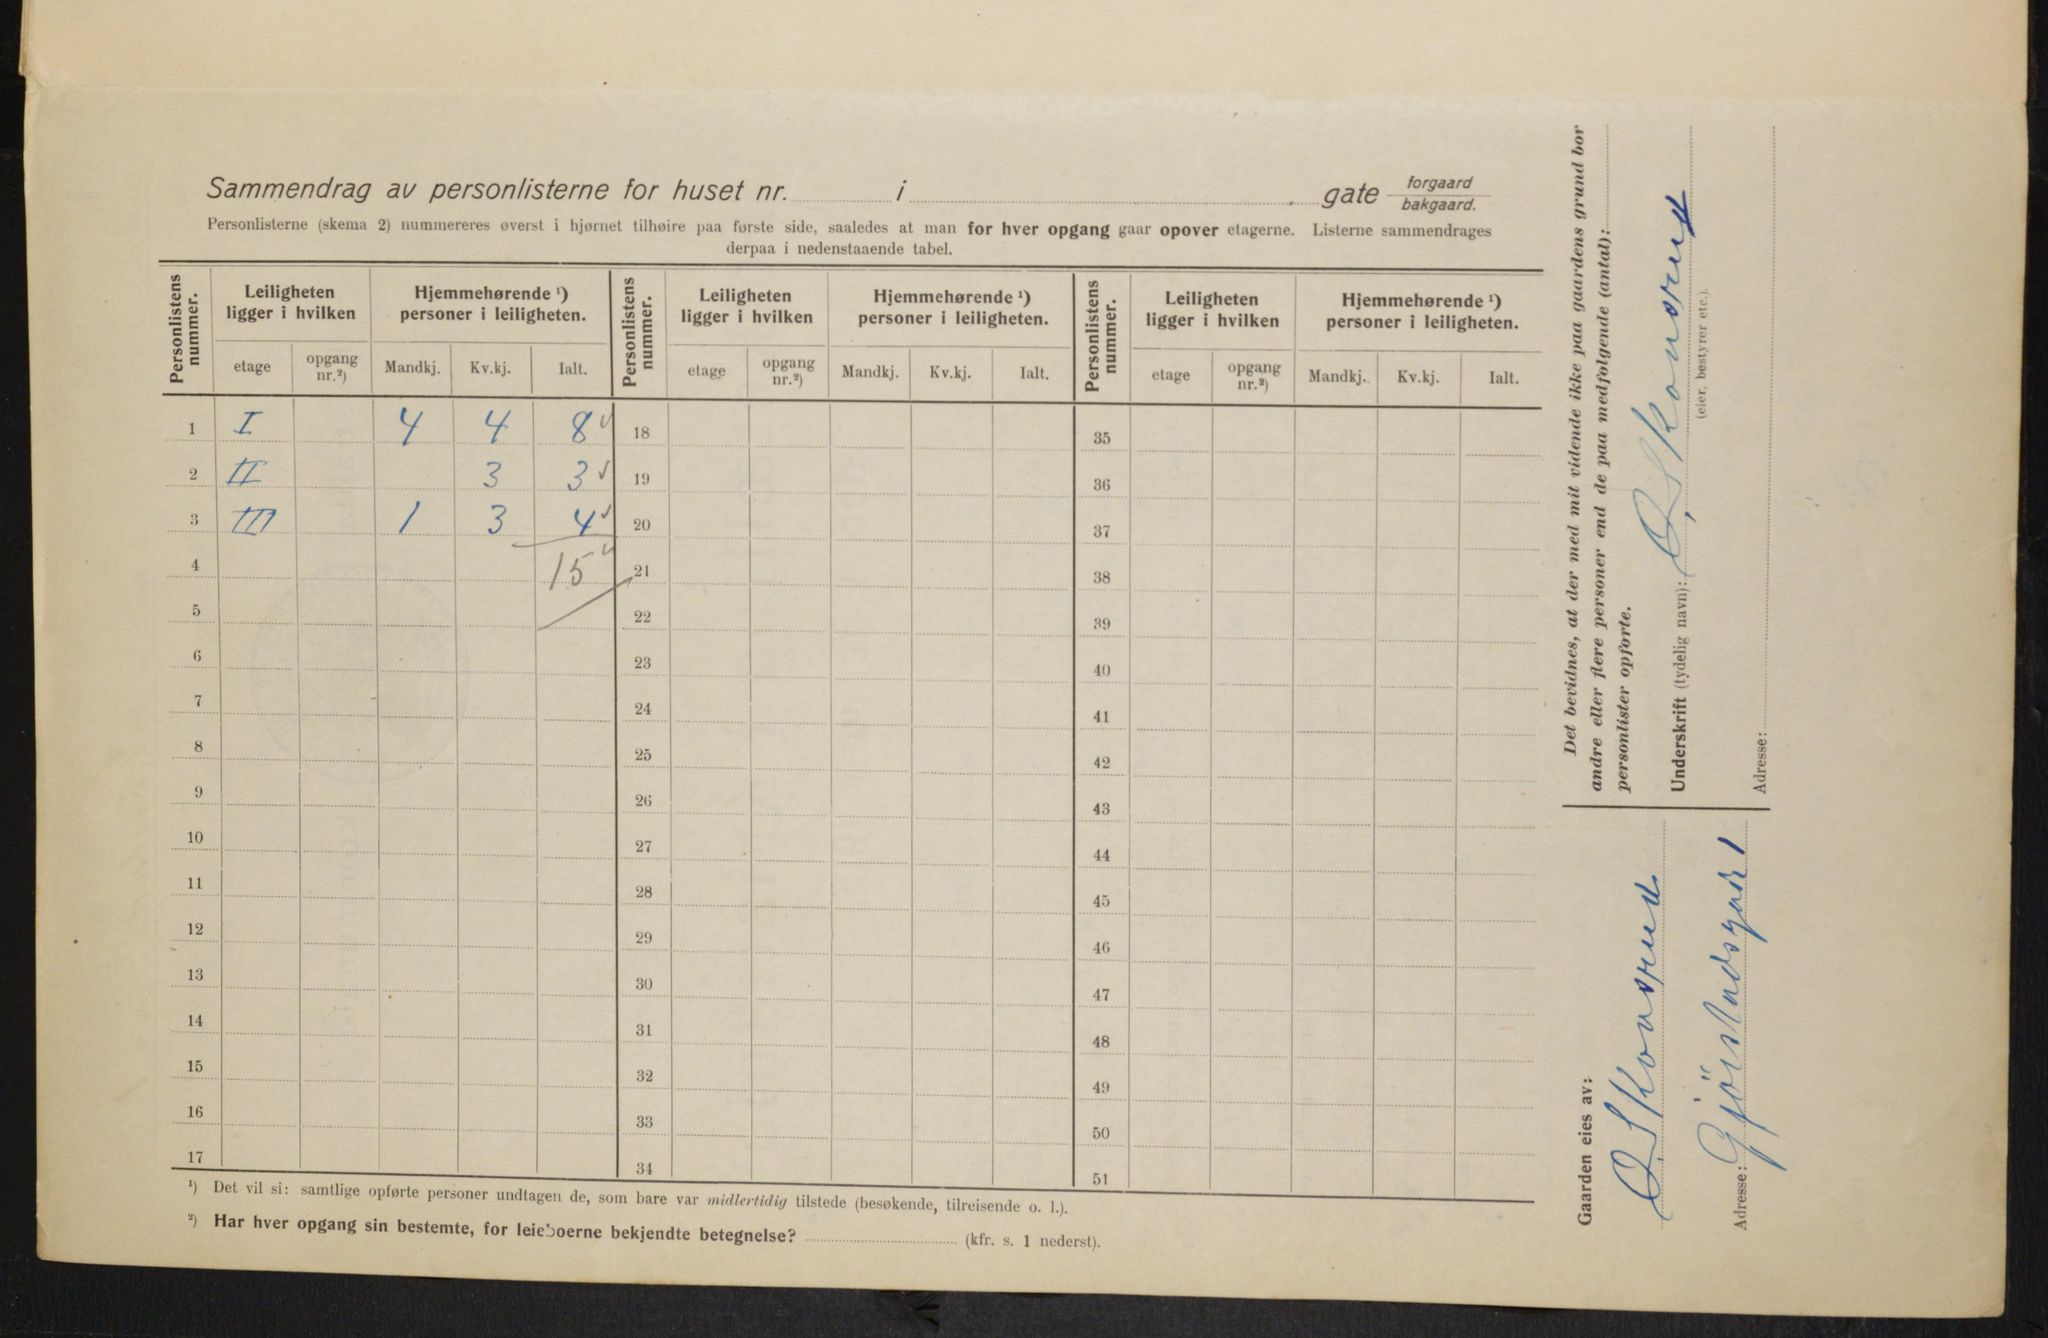 Sammendrag av personlisterne for huset nr. i gate forgaard
bakgaard.
Personlisterne (skema 2) nummereres øverst i hjørnet tilhøire paa første side, saaledes at man for hver opgang gaar opover etagerne. Listerne sammendrages
derpaa i nedenstaaende tabel.
Personlistens nummer. Leiligheten ligger i hvilken Hjemmehørende ¹) personer i leiligheten. Personlistens nummer. Leiligheten ligger i hvilken Hjemmehørende ¹) personer i leiligheten. Personlistens nummer. Leiligheten ligger i hvilken Hjemmehørende ¹) personer i leiligheten.
etage opgang nr.²) Mandkj. Kv.kj. Ialt. etage opgang nr.²) Mandkj. Kv.kj. Ialt. etage opgang nr.²) Mandkj. Kv.kj. Ialt.
1 I 4 4 8 18 35
2 II 3 3 19 36
3 III 1 3 4 20 37
4 15 21 38
5 22 39
6 23 40
7 24 41
8 25 42
9 26 43
10 27 44
11 28 45
12 29 46
13 30 47
14 31 48
15 32 49
16 33 50
17 34 51
¹) Det vil si: samtlige opførte personer undtagen de, som bare var midlertidig tilstede (besøkende, tilreisende o. l.).
²) Har hver opgang sin bestemte, for leieboerne bekjendte betegnelse? (kfr. s. 1 nederst).
Det bevidnes, at der med mit vidende ikke paa gaardens grund bor
andre eller flere personer end de paa medfølgende (antal):
personlister opførte.
Underskrift (tydelig navn): O. Skonsrud
(eier, bestyrer etc.).
Adresse:
Gaarden eies av:
O. Skonsrud
Adresse: Gjörstadsgade 1